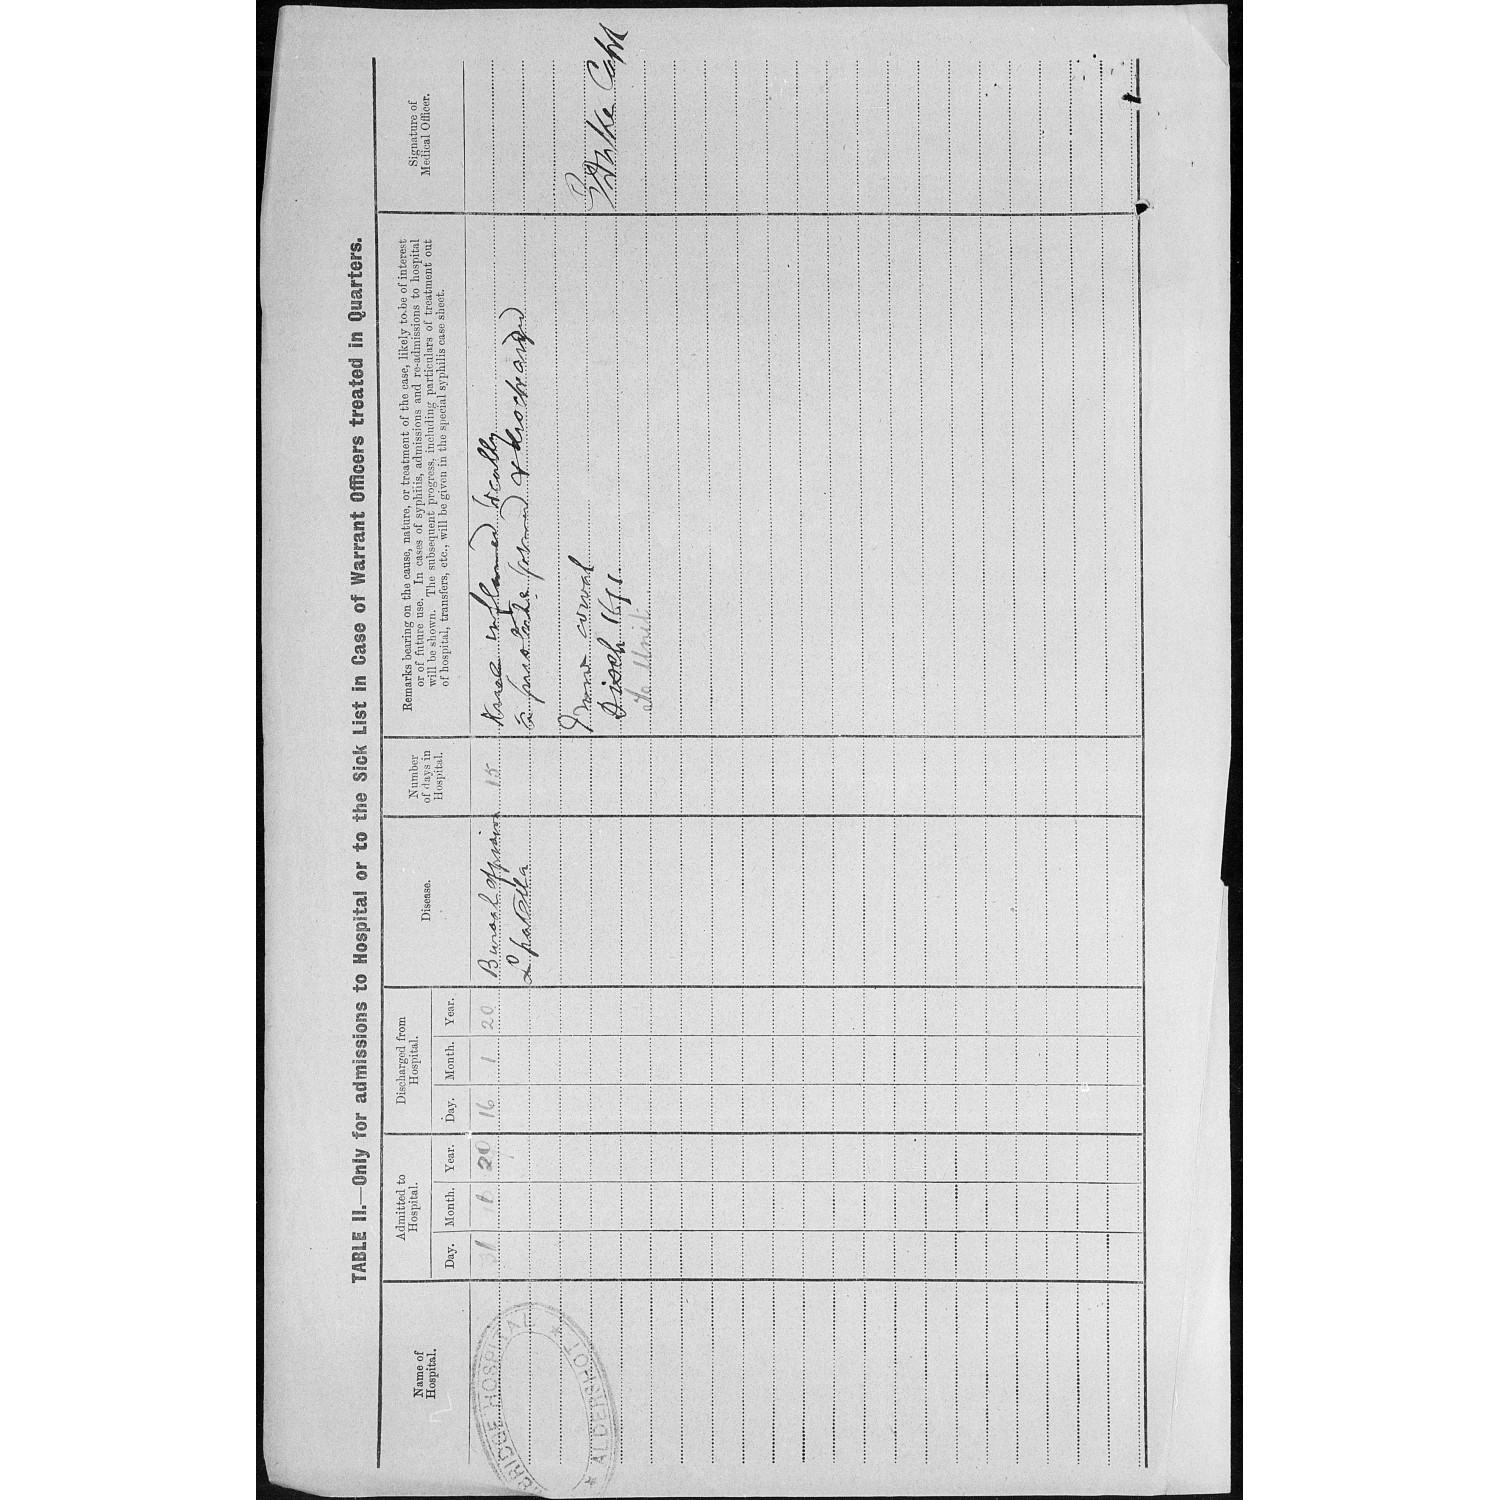 TABLE II.—Only for admissions to Hospital or to the Sick List in Case of Warrant Officers treated in Quarters.
Name of
Hospital.
Admitted to
Hospital.
Day. Month. Year.
Discharged from
Hospital.
Day. Month. Year.
Disease.
Number
of days in
Hospital.
Remarks bearing on the cause, nature, or treatment of the case, likely to be of interest
or of future use. In cases of syphilis, admissions and re-admissions to hospital
will be shown. The subsequent progress, including particulars of treatment out
of hospital, transfers, etc., will be given in the special syphilis case sheet.
Signature of
Medical Officer.
BRIDGE HOSPITAL
* ALDERSHOT *
20
16 1 20
Bursal
L patella
15
Knee inflamed locally
formed &
Disch 16/1
To Unit
Capt